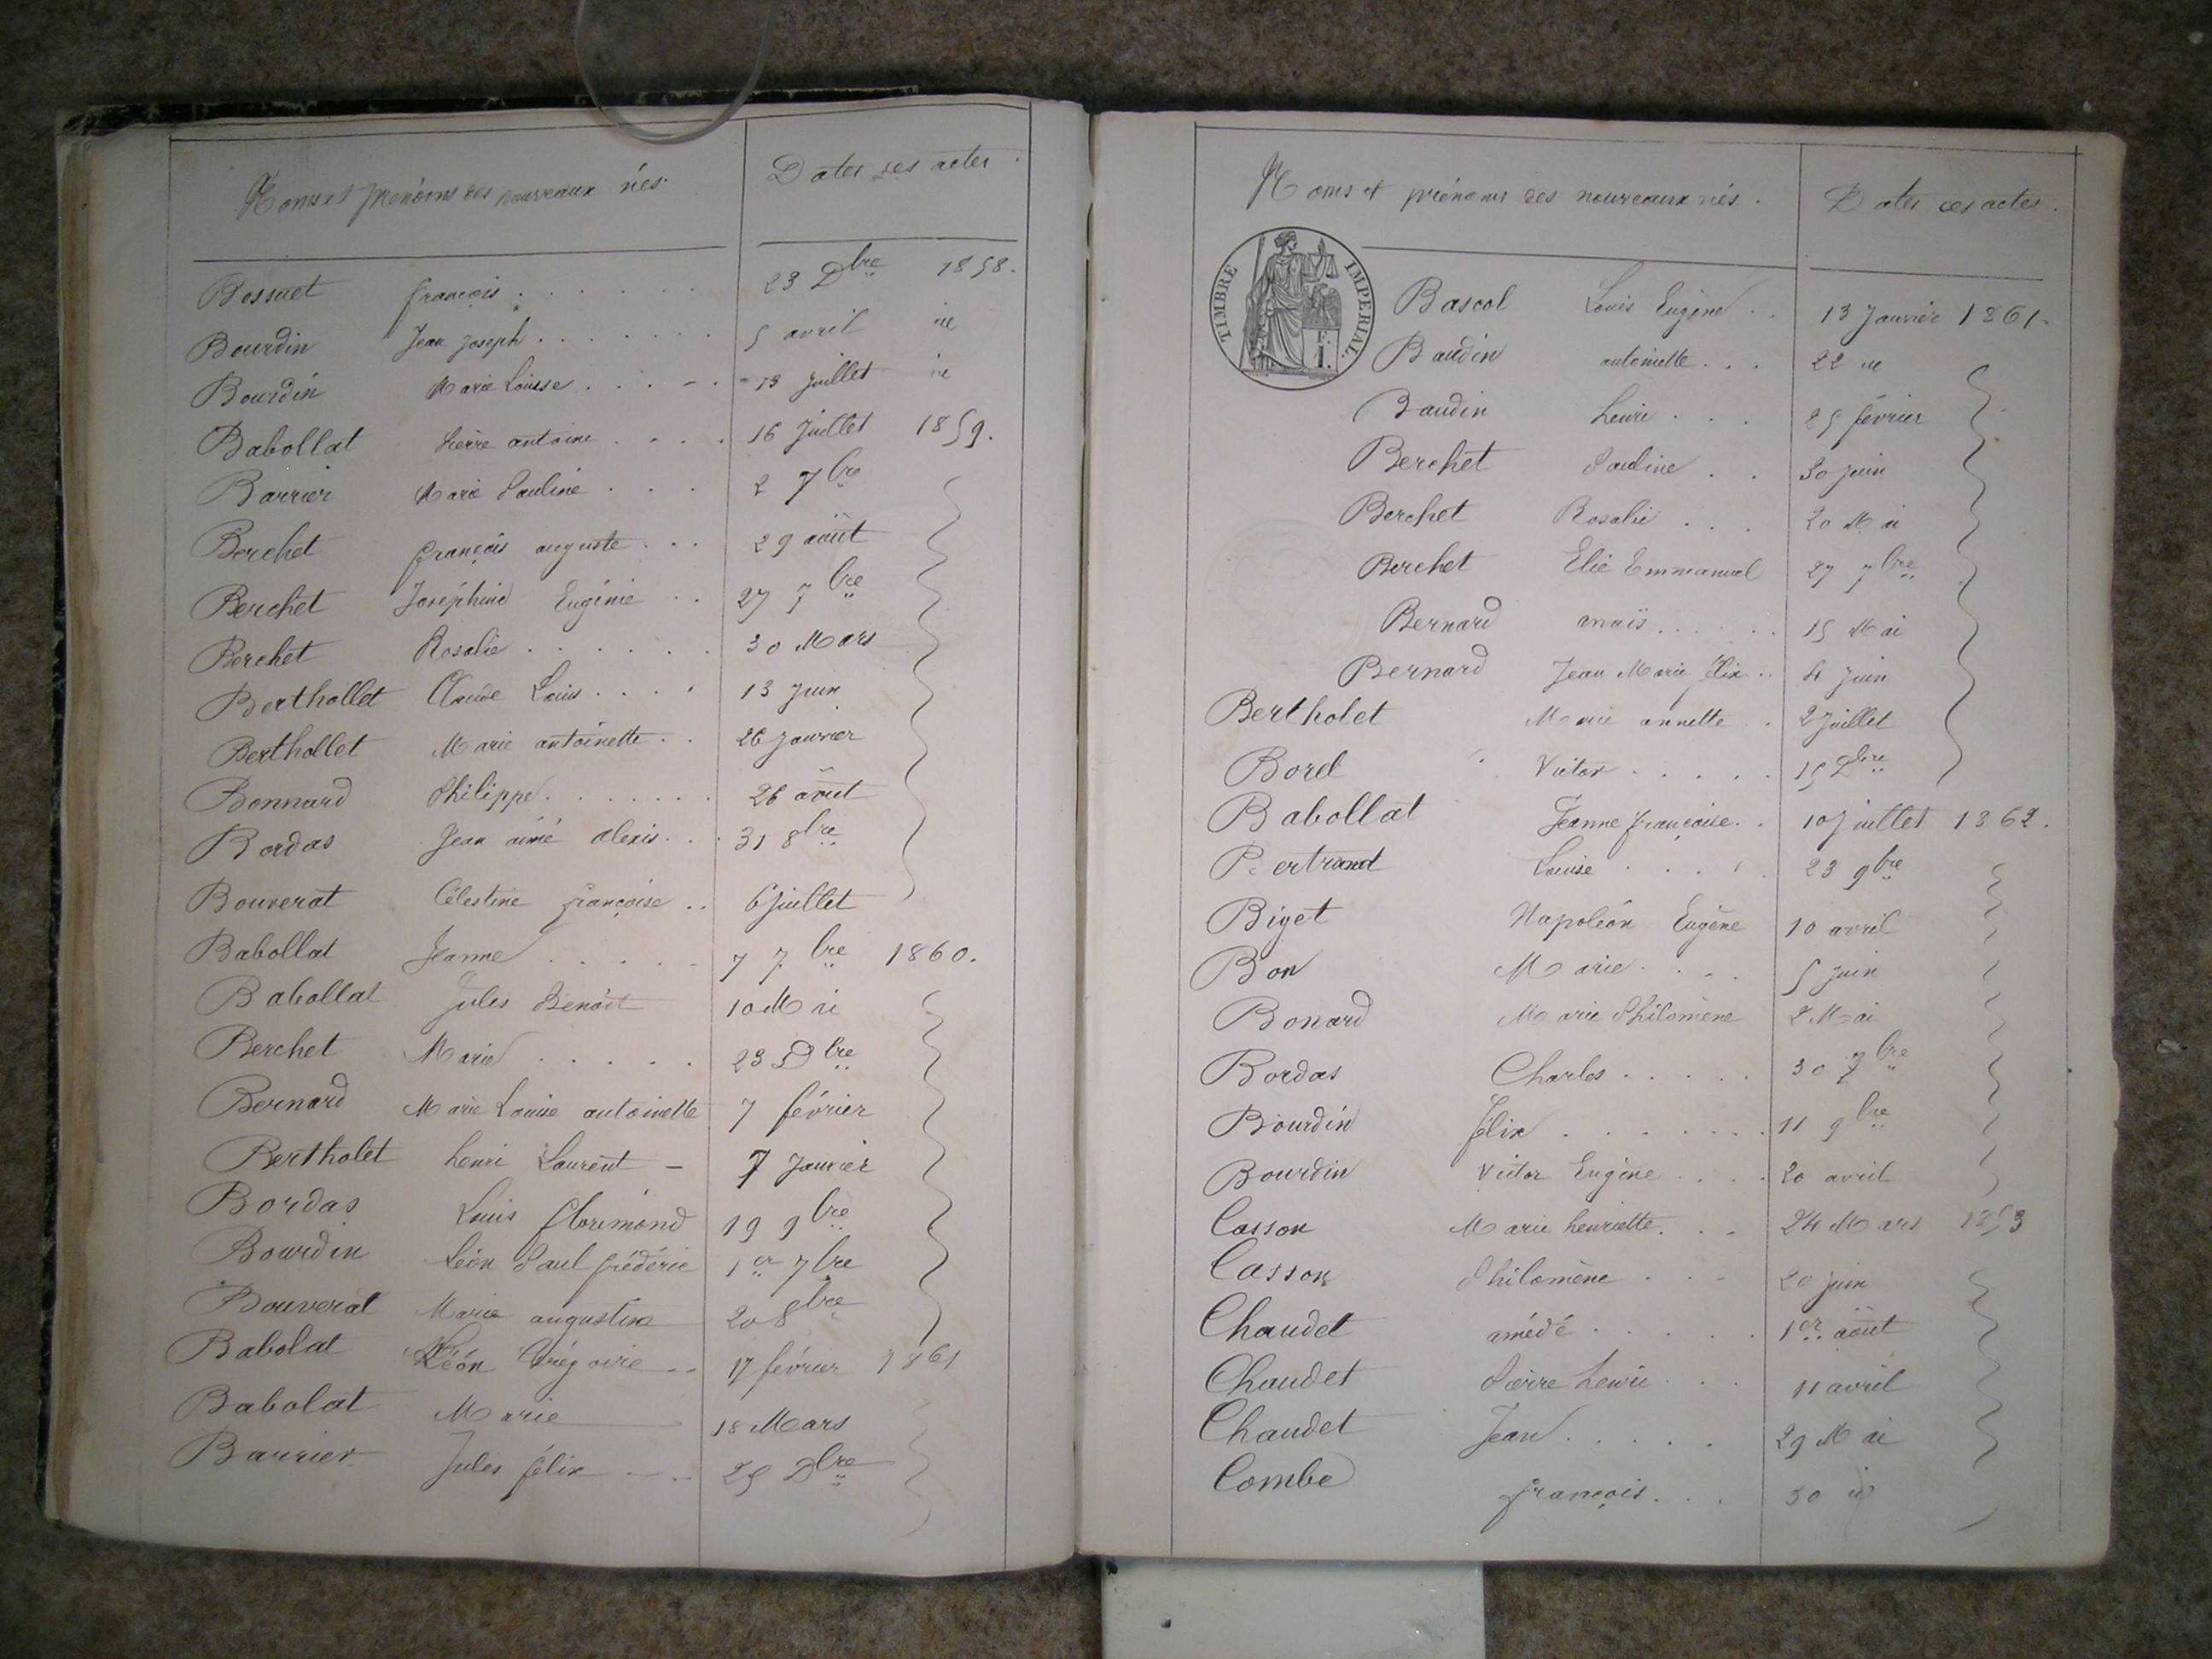 Noms et prénoms des nouveaux nés. Dates des actes.
Bossuet françois . . . . . . 23 Dbre 1858.
Bourdin Jean Joseph . . . . . . . 5 avril
Bourdin Marie Louise . . . . 13 juillet
Babollat Pierre antoine . . . . 16 Juillet 1859.
Barrier Marie Pauline . . . 2 7bre
Berchet françois auguste . . . 29 août
Berchet Joséphine Eugénie . . 27 7bre
Berchet Rosalie . . . . . . . 30 Mars
Berthollet Claude Louis . . . . 13 Juin
Berthollet Marie antoinette . . 26 Janvier
Bonnard Philippe . . . . . . . 26 août
Bordas Jean aimé alexis . . . 31 8bre
Bouverat Célestine françoise . . 6 juillet
Babollat Jeanne . . . . . 7 7bre 1860.
Babollat Jules Benoît 10 Mai
Berchet Marie . . . . . 23 Dbre
Bernard Marie Louise antoinette 7 février
Bertholet henri Laurent - 7 Janvier
Bordas Louis florimond 19 9bre
Bourdin Léon Paul frédéric 1er 7bre
Bouverat Marie augustine 20 8bre
Babolat Léon Grégoire -- 17 février 1861
Babolat Marie 18 Mars
Barrier Jules félix 25 Dbre
Noms et prénoms des nouveaux nés. Dates des actes.
TIMBRE IMPERIAL.
F.
1.
Bascol Louis Eugène . . 13 Janvier 1861.
Baudin antoinette . . . 22
Baudin henri . . . 25 février
Berchet Pauline . . 30 juin
Berchet Rosalie . . . 20 Mai
Berchet Elie Emmanuel 27 7bre
Bernard anaïs . . . . . 15 Mai
Bernard Jean Marie félix . . 4 Juin
Bertholet Marie annette . 2 Juillet
Borel Victor . . . . . 15 Dbre
Babollat Jeanne françoise . . 10 Juillet 1862.
Bertrand Louise . . . . . 23 9bre
Biget Napoléon Eugène 10 avril
Bon Marie . . . . 5 juin
Bonard Marie Philomène 2 Mai
Bordas Charles . . . . . 30 7bre
Bourdin félix . . . . . . . 11 9bre
Bourdin Victor Eugène . . . . 20 avril
Casson Marie henriette . . . 24 Mars 1853
Casson Philomène . . . 20 juin
Chaudet amédé . . . . . . 1er août
Chaudet Pierre henri . . . 11 avril
Chaudet Jean . . . . . 29 Mai
Combe françois . . . 30 id